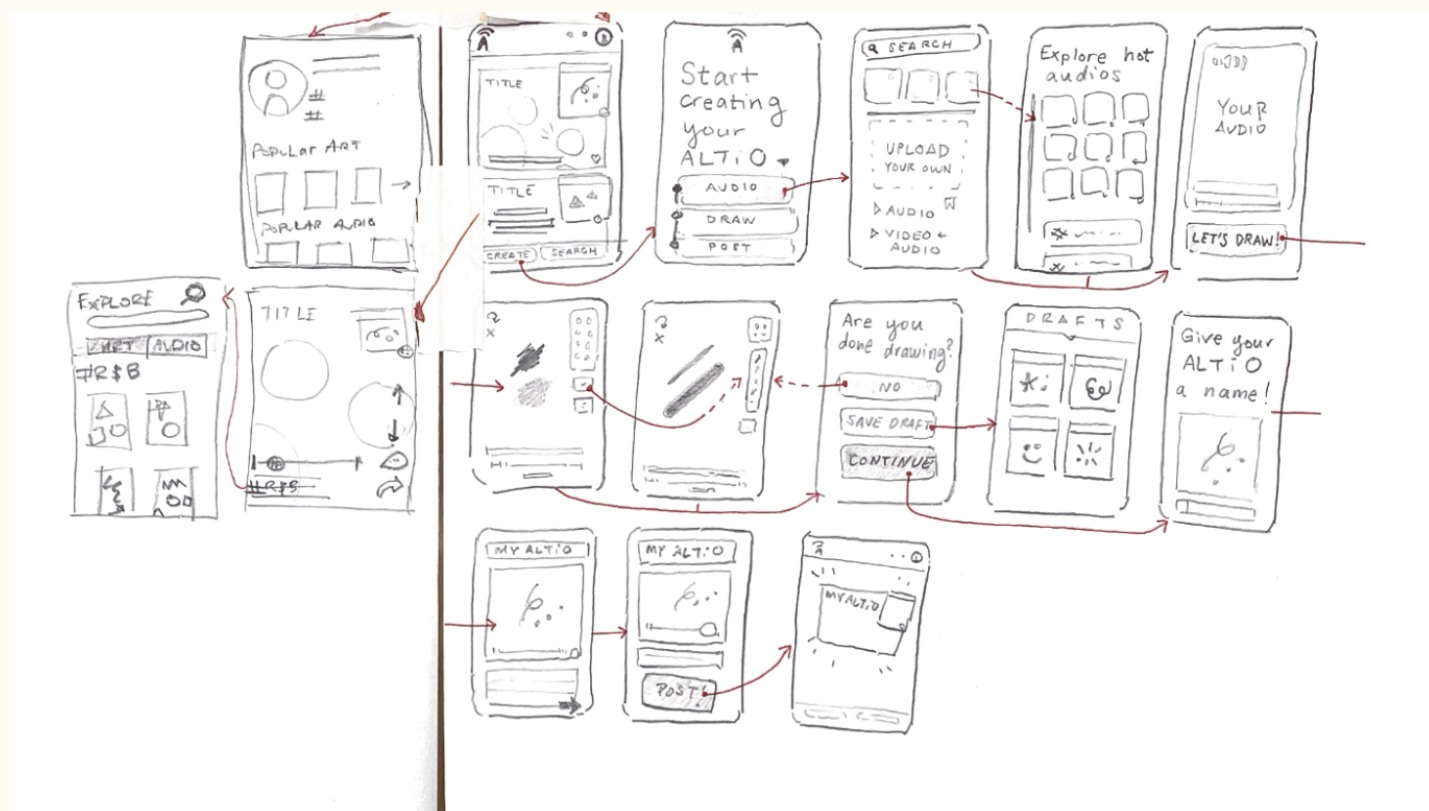 #
#
POPULAR ART
POPULAR AUDIO
TITLE
TITLE
CREATE
SEARCH
A
Start
creating
your
ALTiO
AUDIO
DRAW
POST
SEARCH
UPLOAD
YOUR OWN
AUDIO
VIDEO +
AUDIO
Explore hot
audios
YOUR
AUDIO
LET'S DRAW!
EXPLORE
ART
AUDIO
#R$B
TITLE
#R$B
Are you
done drawing?
NO
SAVE DRAFT
CONTINUE
DRAFTS
Give your
ALTiO
a name!
MY ALTiO
MY ALTiO
POST!
MY ALTiO